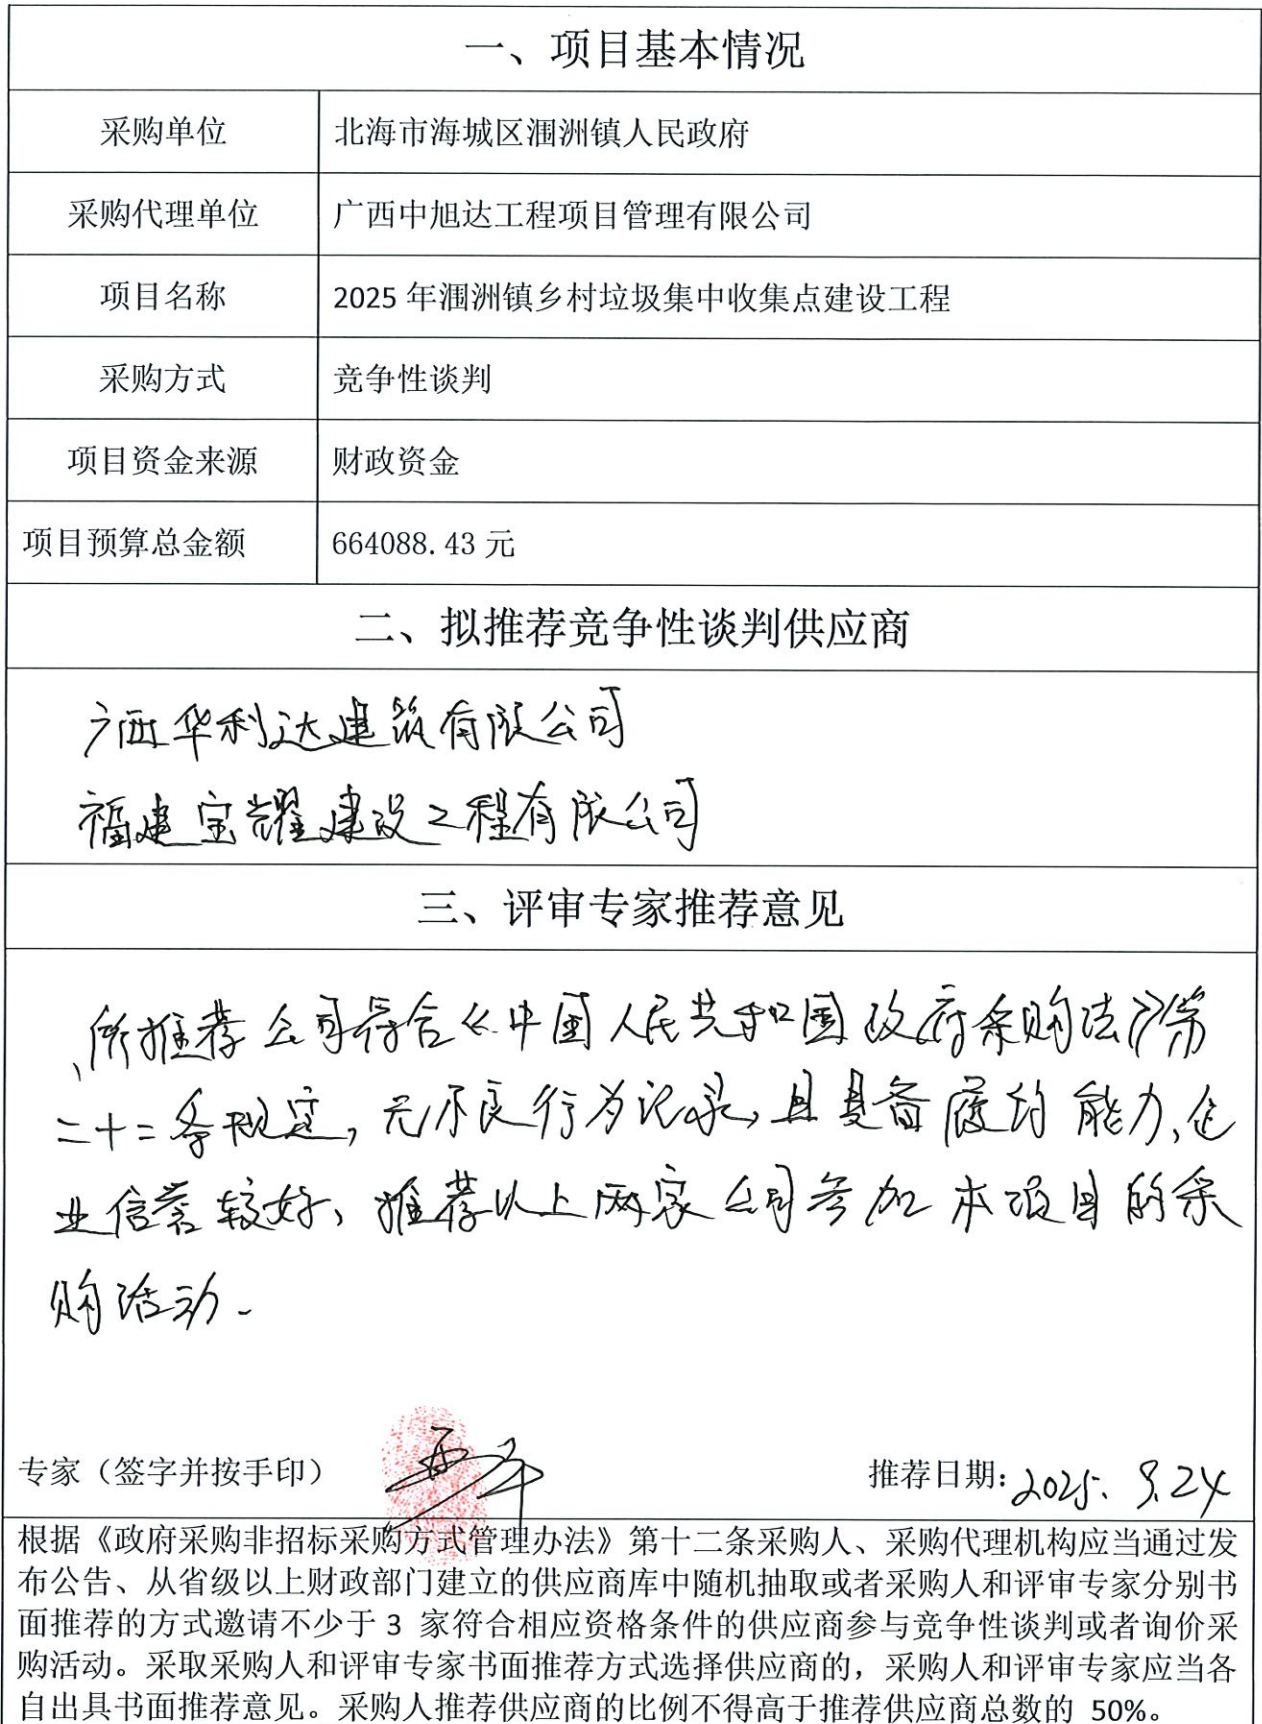 一、项目基本情况
采购单位 北海市海城区涠洲镇人民政府
采购代理单位 广西中旭达工程项目管理有限公司
项目名称 2025 年涠洲镇乡村垃圾集中收集点建设工程
采购方式 竞争性谈判
项目资金来源 财政资金
项目预算总金额 664088.43 元
二、拟推荐竞争性谈判供应商
广西华利达建筑有限公司
福建宝耀建设工程有限公司
三、评审专家推荐意见
所推荐公司符合《中国人民共和国政府采购法》第
二十二条规定,无不良行为记录,且具备履约能力,企
业信誉较好、推荐以上两家公司参加本项目的采
购活动.
专家（签字并按手印） 推荐日期: 2025. 9.24
根据《政府采购非招标采购方式管理办法》第十二条采购人、采购代理机构应当通过发
布公告、从省级以上财政部门建立的供应商库中随机抽取或者采购人和评审专家分别书
面推荐的方式邀请不少于 3 家符合相应资格条件的供应商参与竞争性谈判或者询价采
购活动。采取采购人和评审专家书面推荐方式选择供应商的，采购人和评审专家应当各
自出具书面推荐意见。采购人推荐供应商的比例不得高于推荐供应商总数的 50%。